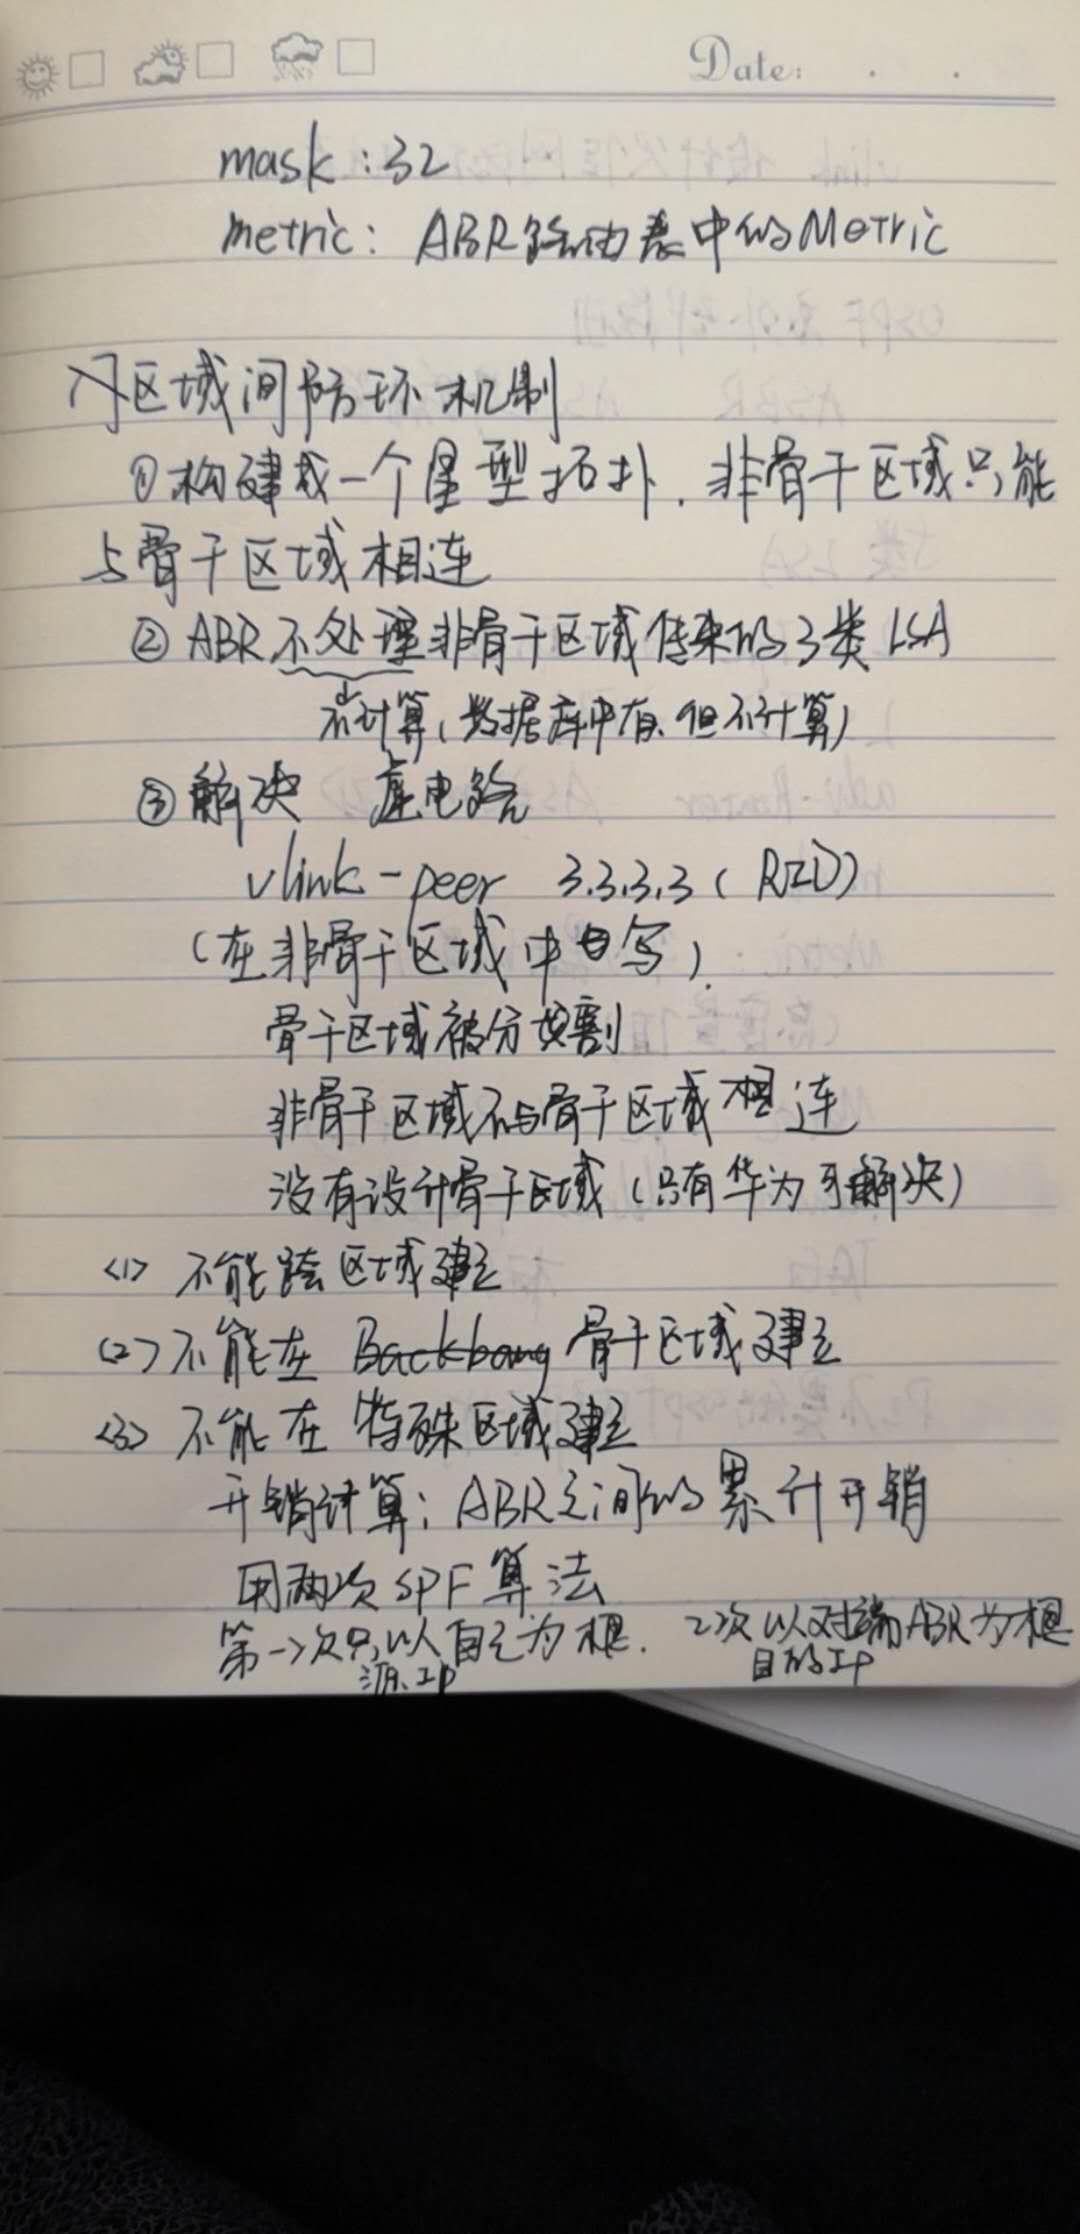 Date:
mask:32
metric: ABR路由表中的Metric
区域间防环机制
①构建成一个星型拓扑.非骨干区域只能
与骨干区域相连
②ABR不处理非骨干区域传来的3类LSA
不计算(数据库中有.但不计算)
③解决 虚电路
vlink-peer 3.3.3.3(RID)
(在非骨干区域中写)
骨干区域被分割
非骨干区域不与骨干区域相连
没有设计骨干区域(只有华为可解决)
<1> 不能跨区域建立
<2> 不能在 骨干区域建立
<3> 不能在特殊区域建立
开销计算: ABR之间的累计开销
用两次SPF算法
第一次只以自己为根. 2次以对端ABR为根
源IP 目的IP